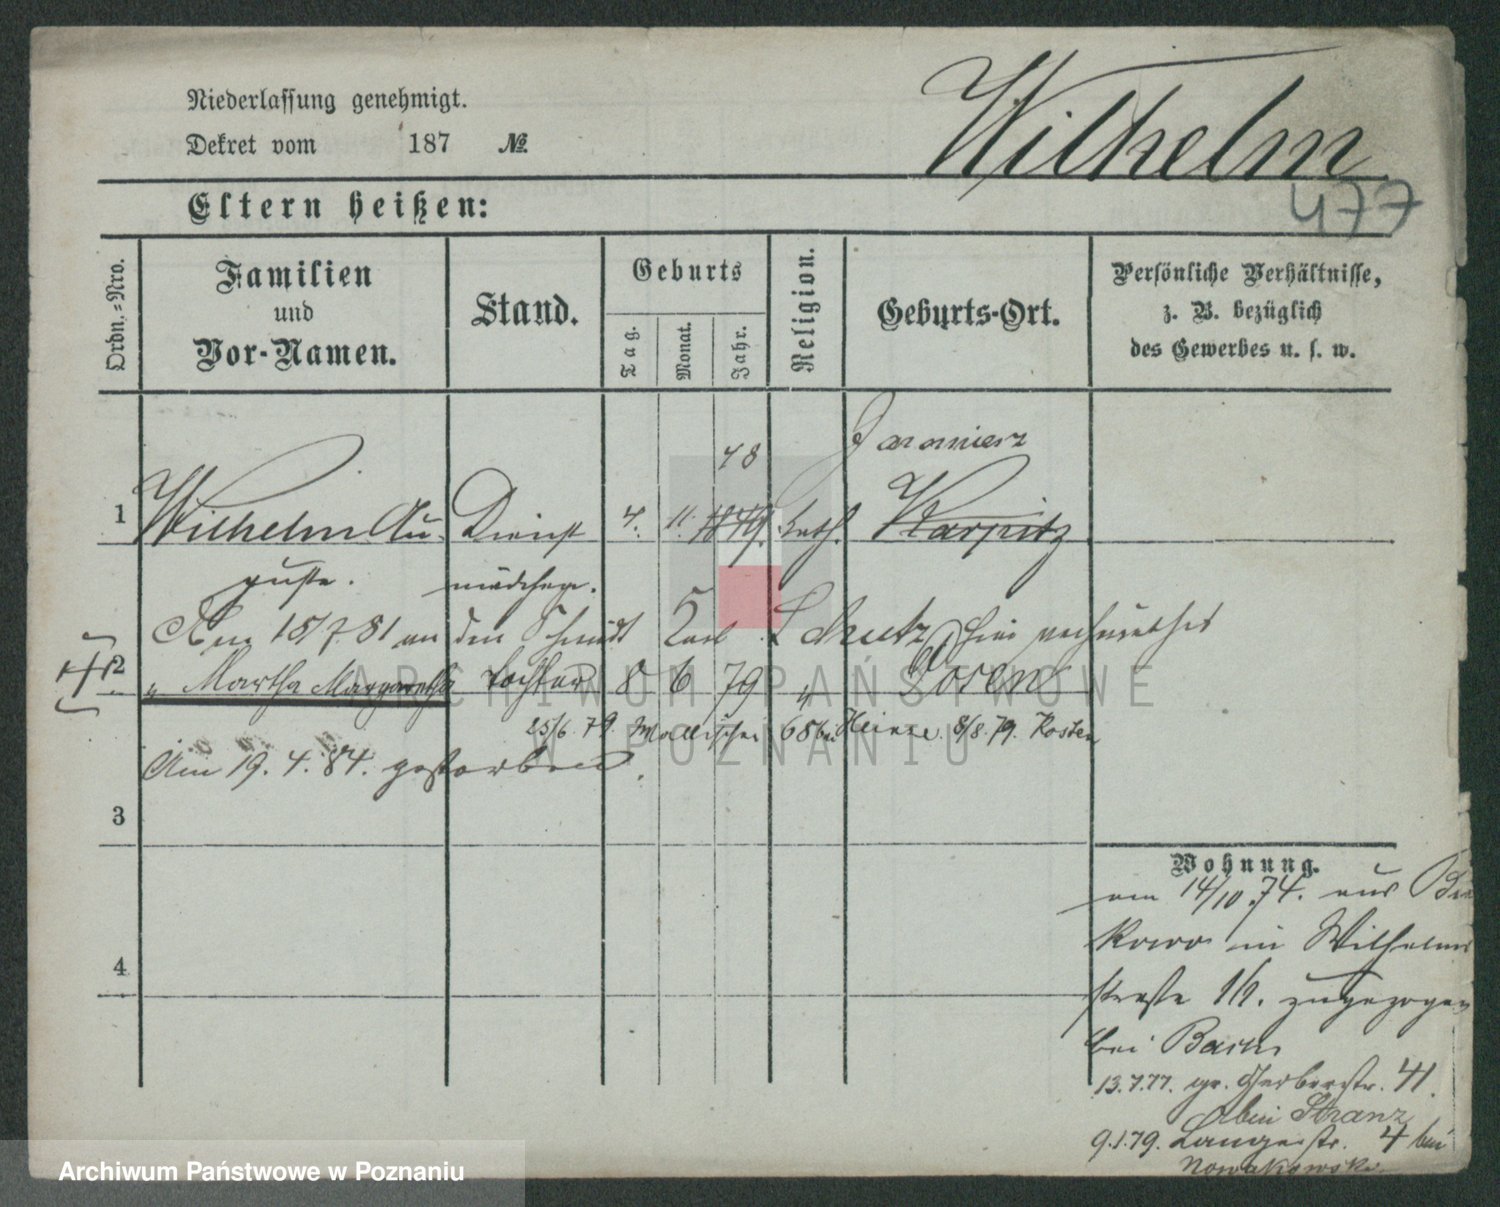 Niederlassung genehmigt.
Dekret vom 187 №
Wilhelm
477
Eltern heißen:
Ordn.-Nro.
Familien
und
Vor-Namen.
Stand.
Geburts
Tag.
Monat.
Jahr.
Religion.
Geburts-Ort.
Persönliche Verhältnisse,
z. B. bezüglich
des Gewerbes u. s. w.
48 Jaromierz
1 Wilhelm Au- Dienst 4. 11. 1849. kath. Karpitz
guste. mädchen.
Am 15/7 81 an den Schmidt Karl Schutz hier verheirathet
2 " Martha Margaretha Tochter 8 6 79 " Posen
25/6. 79. Wallischei 68 bei Heinze. 8/8. 79. Kosten
Am 19. 4. 84. gestorben.
3
4
Wohnung.
am 14/10. 74. aus
kowo in Wilhelms
straße 16. zugezogen
bei
13.7.77. gr. Gerberstr. 41.
bei Stranz
9.1.79. Langestr. 4 bei
Nowakowski.
ARCHIWUM PAŃSTWOWE
W POZNANIU
Archiwum Państwowe w Poznaniu